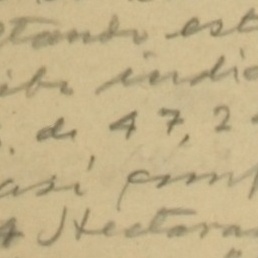 tando est
ibi indic
. de 47,2
así comp
Hectarea